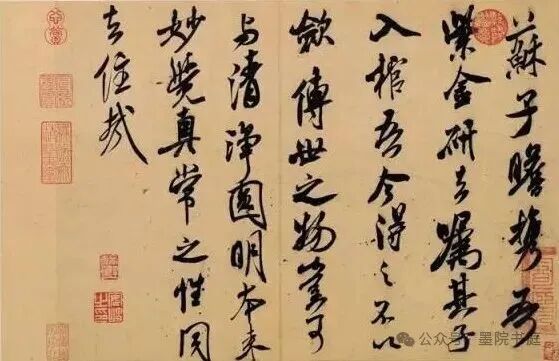 蘇子瞻携吾
紫金研去嘱其子
入棺吾今得之不以
斂傳世之物豈可
与清淨圓明本来
妙覺真常之性同
去住哉
公众号·墨院书庭